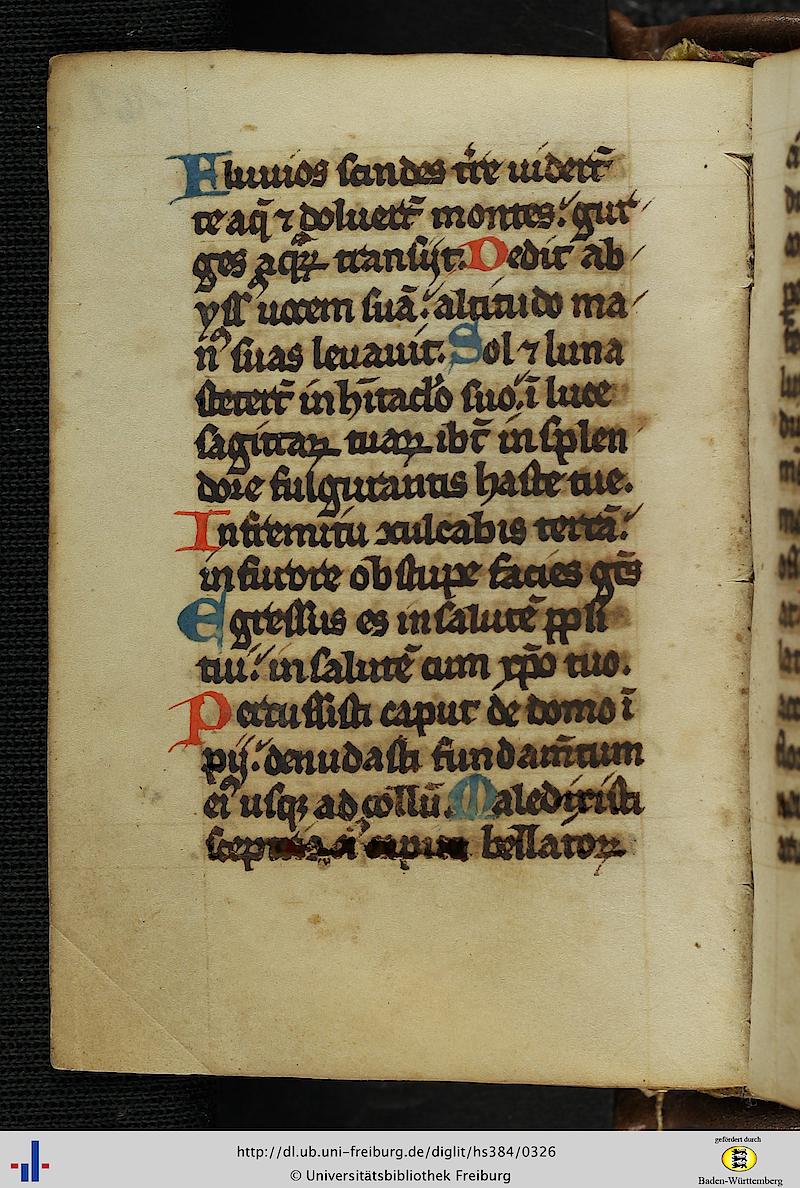 Fluuios scindes t̾re uider̄t
te aq̄ ⁊ doluer̄t montes: gur
ges aqꝝ transijt. Dedit ab
yssꝰ uocem suā: altitudo ma
nꝰ suas leuauit. Sol ⁊ luna
steter̄t in h̄itaclo suo: ī luce
sagittaꝝ tuaꝝ ibt̄ in splen
dore fulgurantis haste tue.
In fremitu ↄculcabis terrā:
in furore obstupe facies gt̄es
Egressus es in salutē ppli
tui: in salutē cum xp̄o tuo.
Percussisti caput de domo ī
pij: denudasti fundam̄tum
eiꝰ usqꝫ ad collū. Maledixisti
sceptris eiꝰ capiti bellatoꝝ
http://dl.ub.uni-freiburg.de/diglit/hs384/0326
© Universitätsbibliothek Freiburg
gefördert durch
Baden-Württemberg